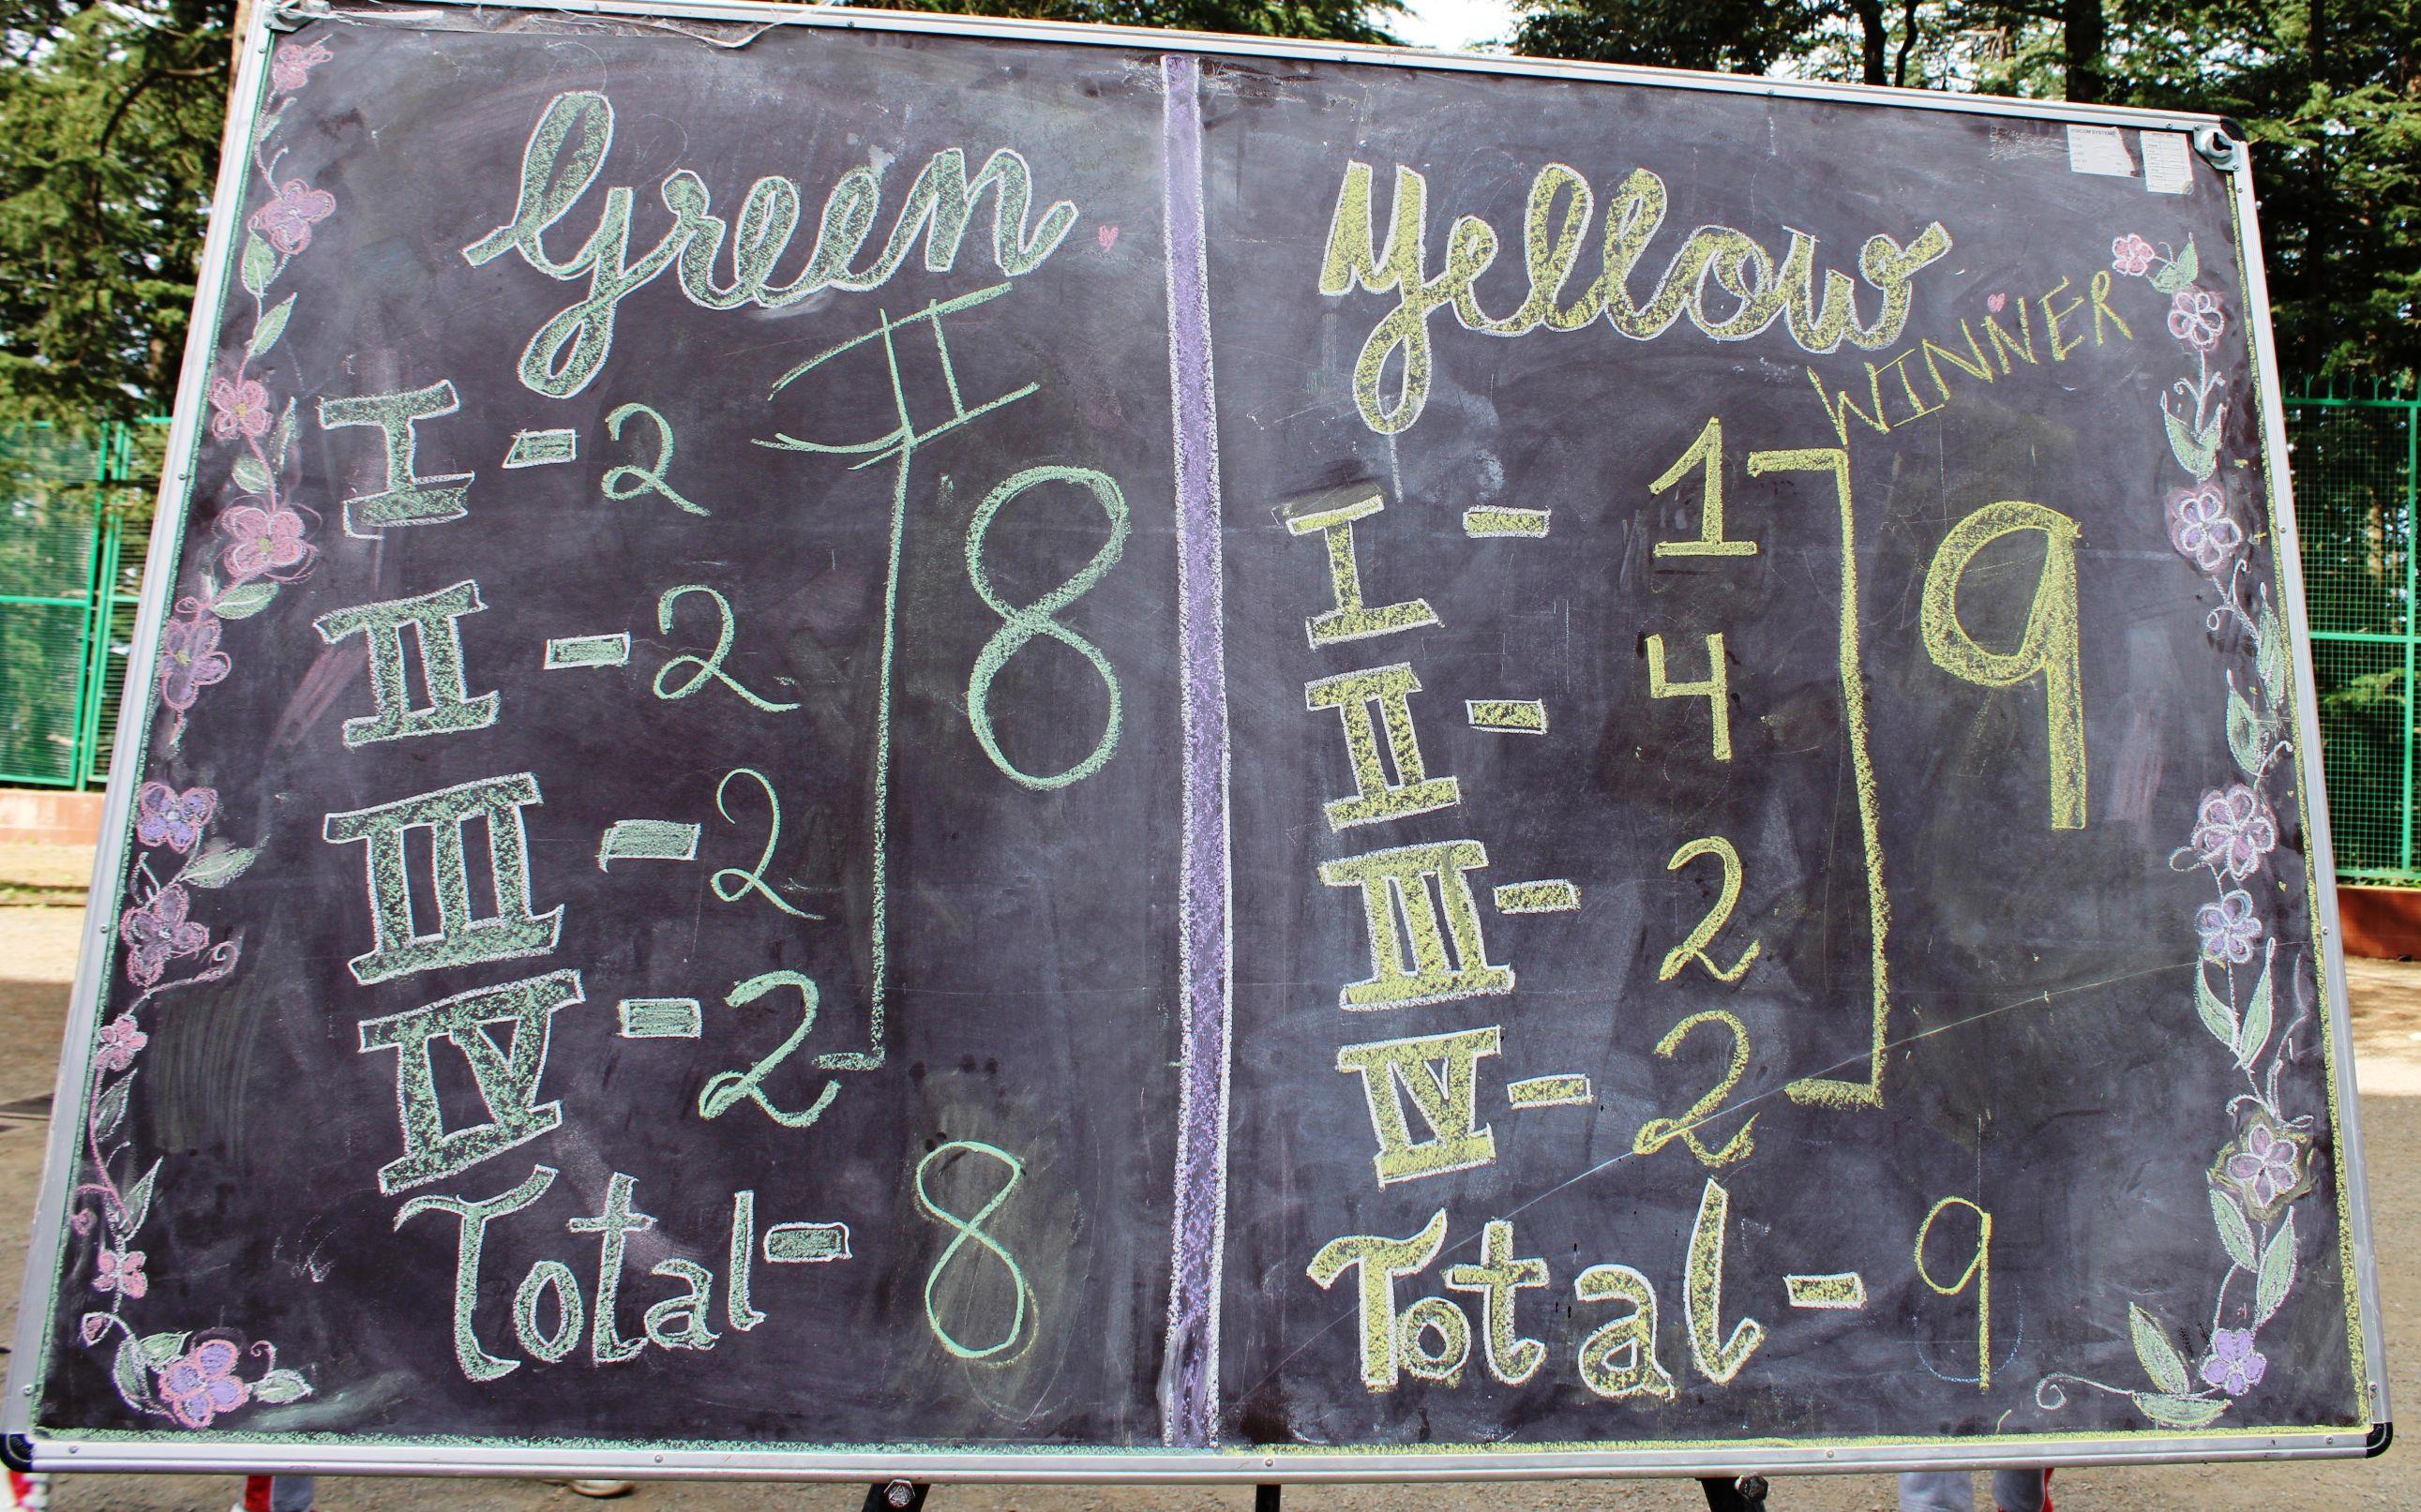 Green
II
I - 2
8
II - 2
III - 2
IV - 2
Total - 8
Yellow
WINNER
I - 1
9
II - 4
III - 2
IV - 2
Total - 9